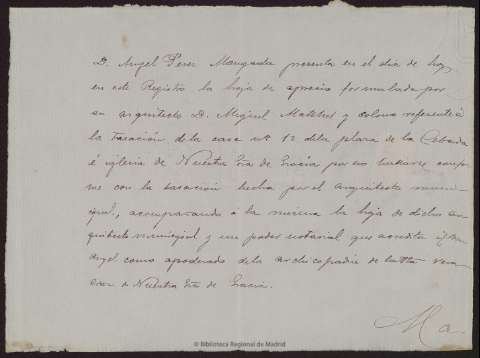 D. Angel Perez Mangada presenta en el dia de hoy
en este Registro la hoja de aprecio formulada por
su arquitecto D. Miguel y referente á
la tasación de la casa nº 12 de la plaza de la Cebada
é iglesia de Nuestra Sra de Gracia por no
con la tasación hecha por el arquitecto muni-
cipal, acompañando a la misma la hoja de dicho ar-
quitecto municipal y un poder notarial que acredita
Angel como apoderado de la archicofradia de la
de Nuestra Sra de Gracia.
© Biblioteca Regional de Madrid